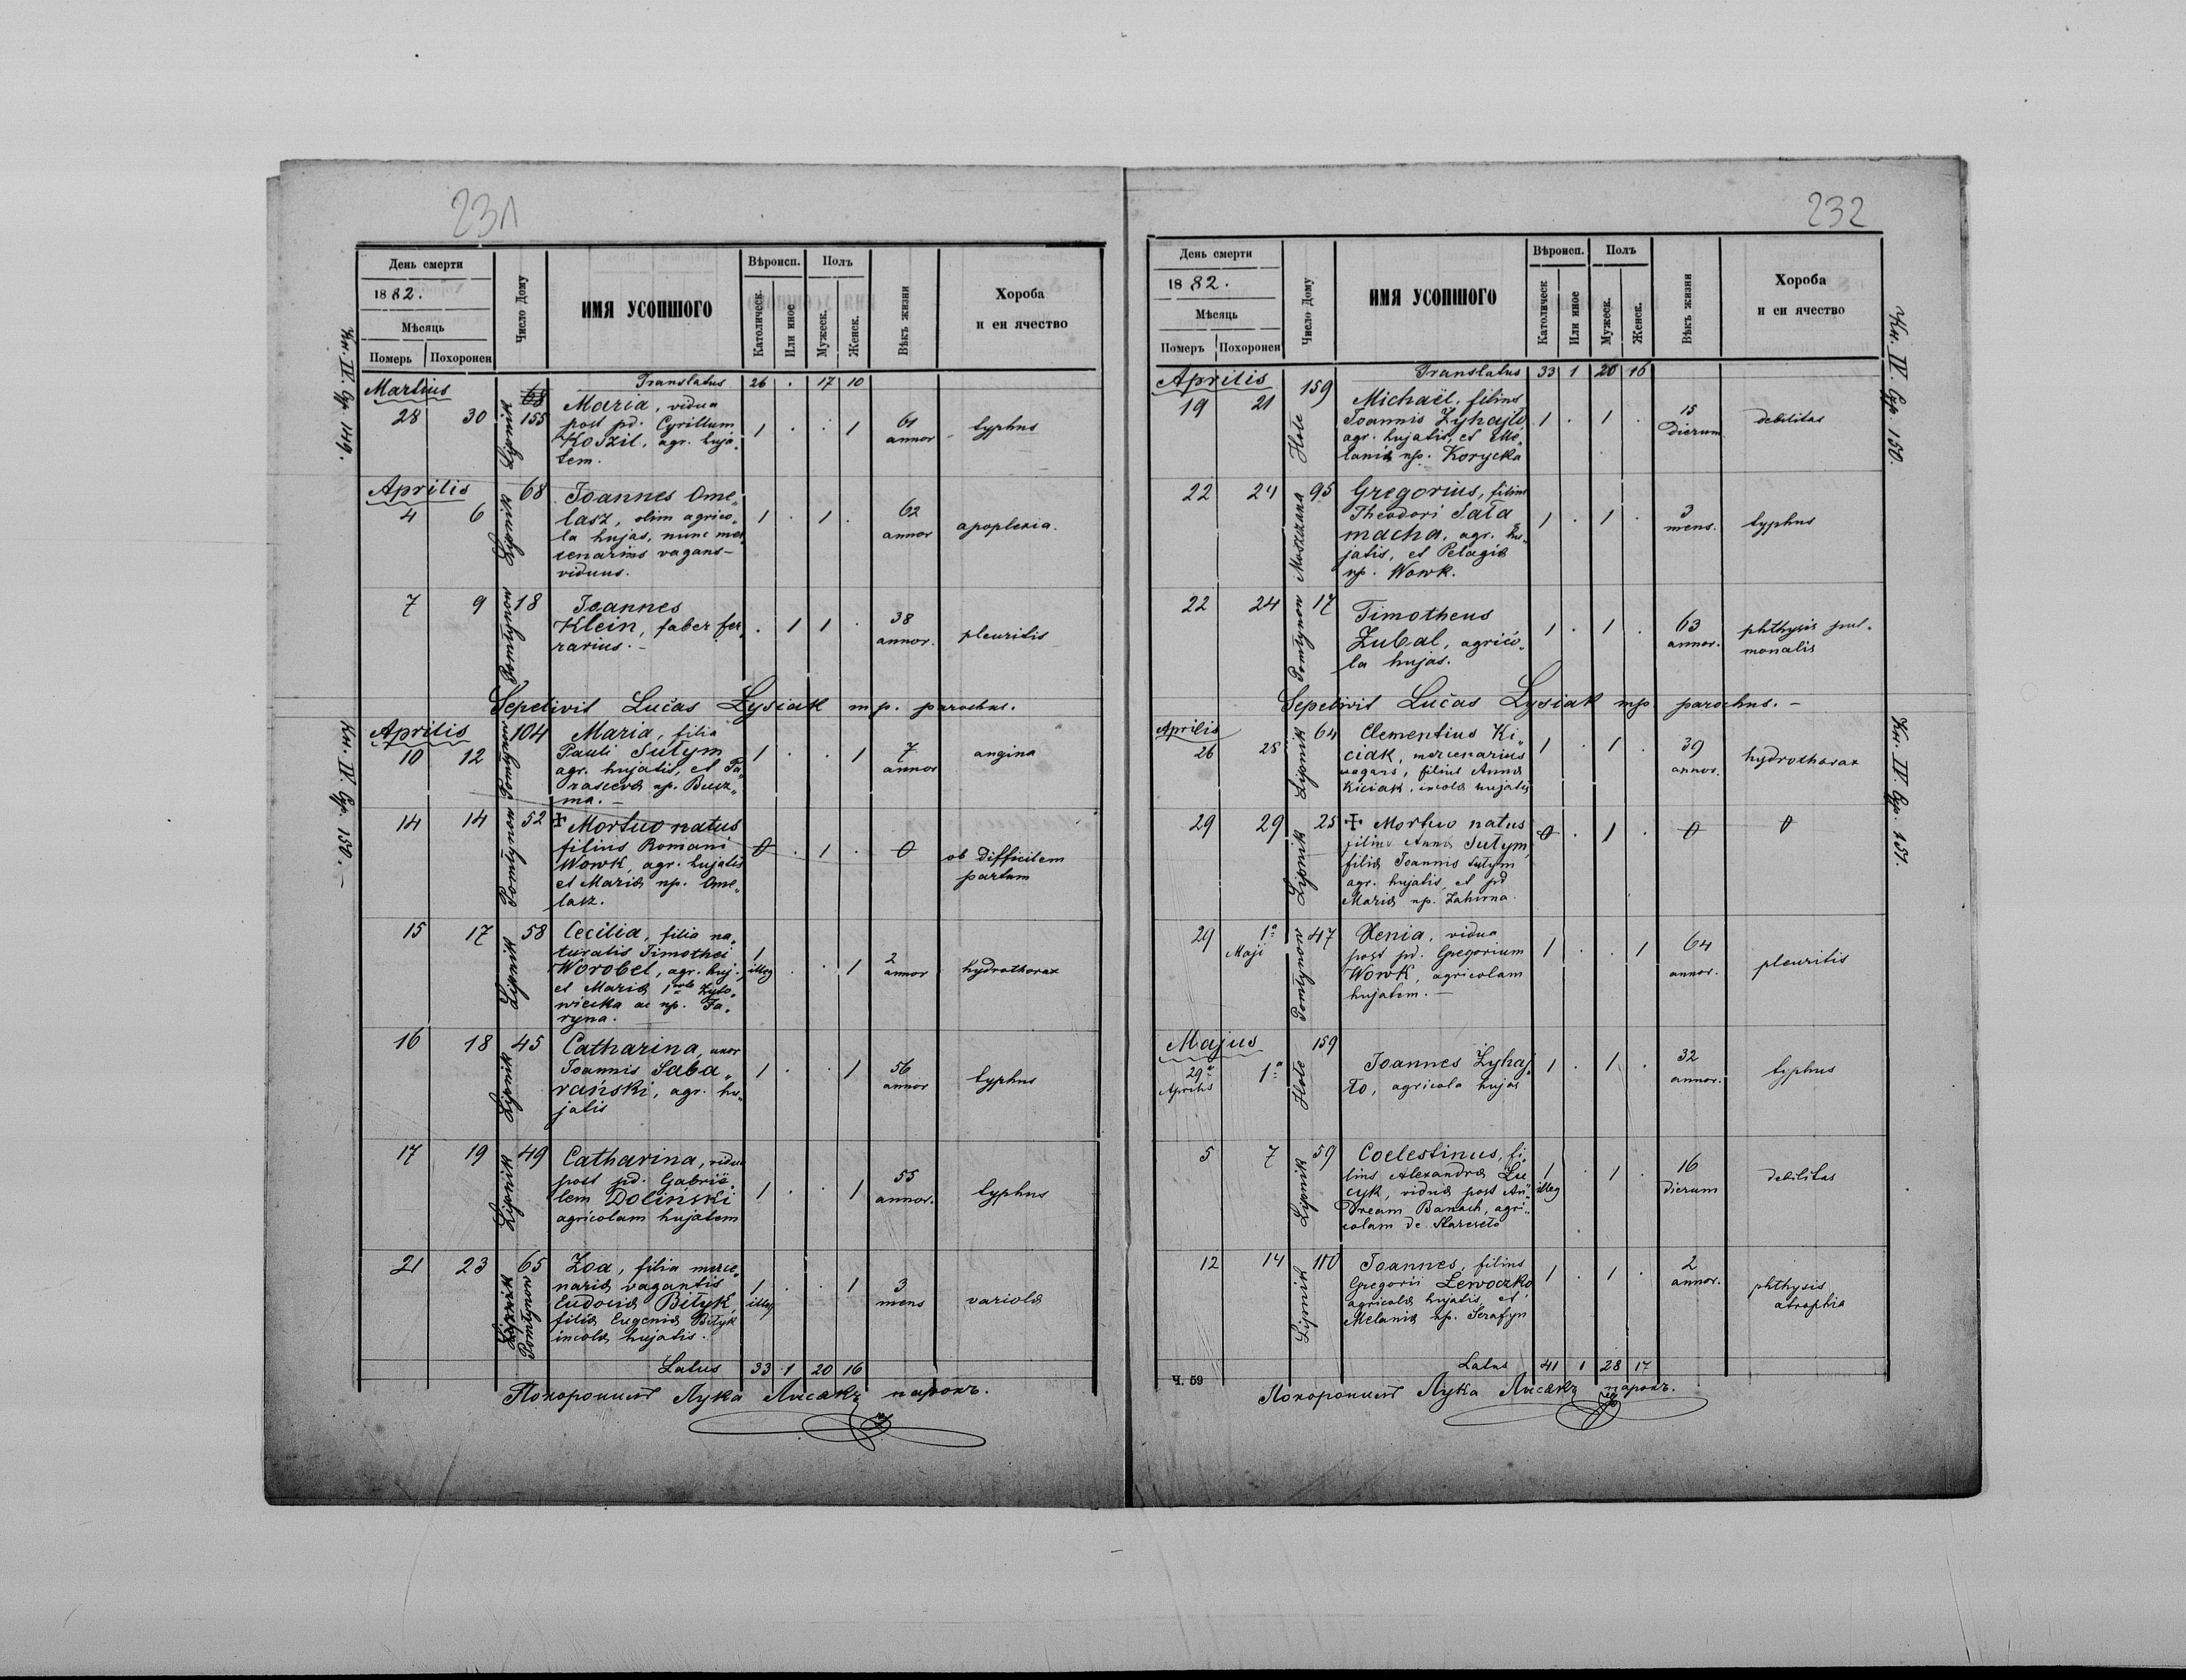 231
День смерти
1882.
Мѣсяць
Померъ Похоронен
Число Дому
ИМЯ УСОПШОГО
Вѣроисп.
Католическ.
Или иное
Полъ
Мужеск.
Женск.
Вѣкъ жизни
Хороба
и еи ячество
Кн. IV. Стр. 149.
Translatus 26 . 17 10
Martius
28 30 Lipnik 68 155
Maria, vidua
post pd. Cyrillum
Koszil, agr. huja„
tem.
1 . . 1
61
annor
typhus
Aprilis
4 6 Lipnik 68
Joannes Ome„
lasz, olim agrico„
la hujas, nunc mer
cenarius vagans –
viduus.
1 . 1 .
62
annor
apoplexia.
7 9 Pomłynow 18
Joannes
Klein, faber fer„
rarius. –
. 1 1 .
38
annor.
pleuritis
Sepelivit Lucas Lysiak mp. parochus.
Кн. IV. Стр. 150. –
Aprilis
10 12 Pomłynow 104
Maria, filia
Pauli Sutym
agr. hujatis, et Pa„
rascevæ np. Busz„
ma. –
1 . . 1
7
annor
angina
14 14 Pomłynow 52
+ Mortuo natus
filius Romani
Wowk, agr. hujatis
et Mariæ np. Ome„
lasz.
0 . 1 . 0
ob difficilem
partum
15 17 Lipnik 58
Cecilia, filia na„
turalis Timothei
Worobel, agr. huj.
et Mariæ 1 voto Zyto„
wiecka ac np. Ta„
ryna.
1
illeg . . 1
2
annor
hydrothorax
16 18 Lipnik 45
Catharina, uxor
Joannis Saba„
rański, agr. hu„
jatis
1 . . 1
56
annor
typhus
17 19 Lipnik 49
Catharina, vidua
post pd. Gabrië„
lem Doliński
agricolam hujatem
1 . . 1
55
annor.
typhus
21 23 Lipnik Pomłynow 65
Zoa, filia merce„
nariæ vagantis
Eudociæ Biłyk,
filiæ Eugeniæ Biłyk
incolæ hujatis.
1
illeg . . 1
3
mens
variolæ
Latus 33 1 20 16
Похоронилъ Лука Лисякъ парохъ.
232
День смерти
1882.
Мѣсяць
Померъ Похоронен
Число Дому
ИМЯ УСОПШОГО
Вѣроисп.
Католическ
Или иное
Полъ
Мужеск.
Женск.
Вѣкъ жизни
Хороба
и еи ячество
Кн. IV. Стр. 150.
Translatus 33 1 20 16
Aprilis
19 21 Hole 159
Michaël, filius
Joannis Zyhajło
agr. hujatis, et Me„
laniæ np. Korycka
1 . 1 .
15
dierum
debilitas
22 24 Moszczana 95
Gregorius, filius
Theodori Sała
macha, agr. hu„
jatis, et Pelagiæ
np. Wowk.
1 . 1 .
3
mens.
typhus
22 24 Pomłynow 17
Timotheus
Zubal, agrico„
la hujas.
1 . 1 .
63
annor.
phthysis pul„
monalis
Sepelivit Lucas Lysiak mp. parochus. –
Кн. IV Стр. 151.
Aprilis
26 28 Lipnik 64
Clementius Ki„
ciak, mercenarius
vagans, filius Annæ
Kiciak, incolæ hujatis
1 . 1 .
39
annor.
hydrothorax
29 29 Lipnik 25
+ Mortuo natus
filius Annæ Sutym,
filiæ Joannis Sutym
agr. hujatis, et pd
Mariæ np. Zahirna.
0 . 1 . 0 0
29 1ª Maji Pomłynow 47
Xenia, vidua
post pd. Gregorium
Wowk, agricolam
hujatem. –
1 . . 1
64
annor.
pleuritis
Majus
29ª Aprilis 1ª Hole 159
Joannes Zyhaj„
ło, agricola hujas
1 . 1 .
32
annor.
typhus
5 7 Lipnik 59
Coelestinus, fi„
lius Alexandræ Lu
cyk, viduæ post An„
dream Banach, agri„
colam de Staresioło
1
illeg . 1 .
16
dierum
debilitas
12 14 Lipnik 110
Joannes, filius
Gregorii Lewoczko
agricolæ hujatis, et
Melaniæ np. Serafyn
1 . 1 .
2
annor.
phthysis
atrophia
Latus 41 1 28 17
Ч. 59
Похоронилъ Лука Лисякъ парохъ.